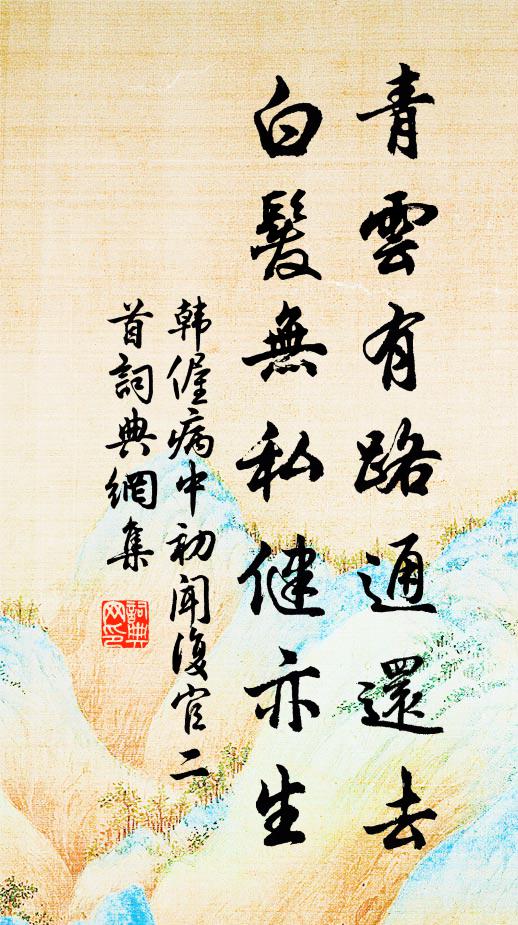 青雲有路通還去
白髮無私健亦生
韩偓病中初闻復官二
首詞典網集
詞典網印